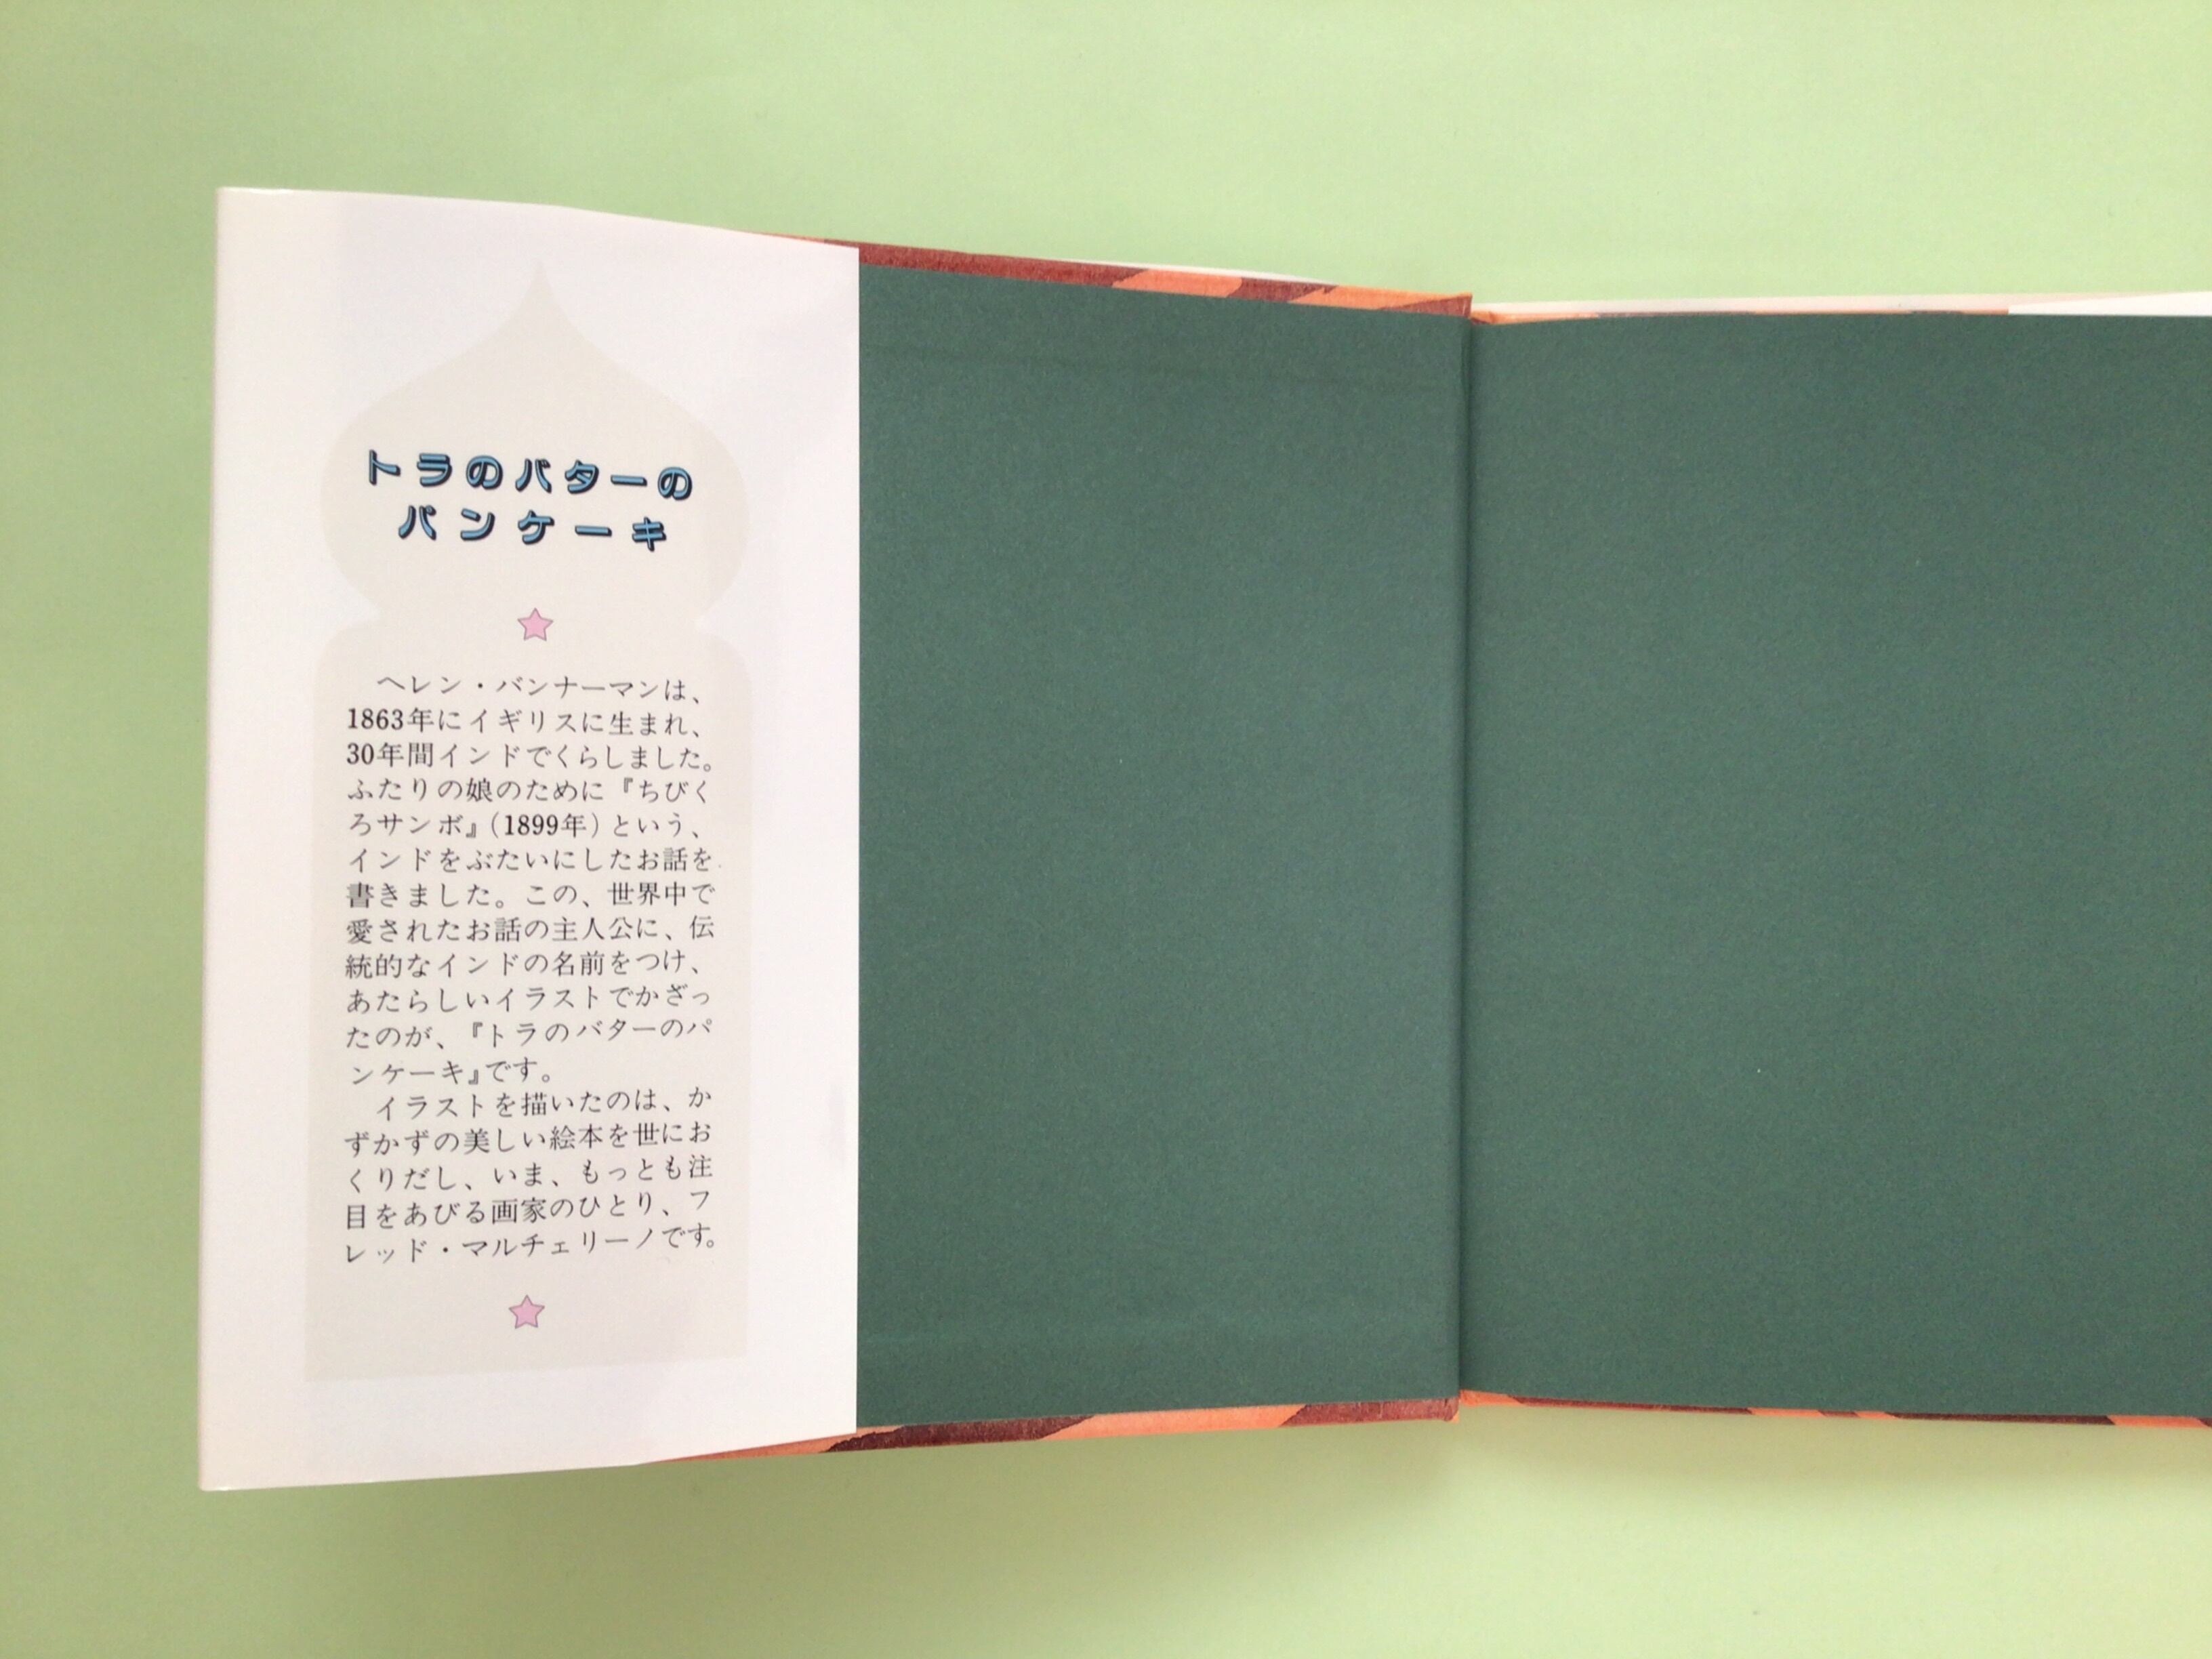 トラのバターの
パンケーキ
ヘレン・バンナーマンは、
1863年にイギリスに生まれ、
30年間インドでくらしました。
ふたりの娘のために『ちびく
ろサンボ』(1899年)という、
インドをぶたいにしたお話を
書きました。この、世界中で
愛されたお話の主人公に、伝
統的なインドの名前をつけ、
あたらしいイラストでかざっ
たのが、『トラのバターのパ
ンケーキ』です。
イラストを描いたのは、か
ずかずの美しい絵本を世にお
くりだし、いま、もっとも注
目をあびる画家のひとり、フ
レッド・マルチェリーノです。